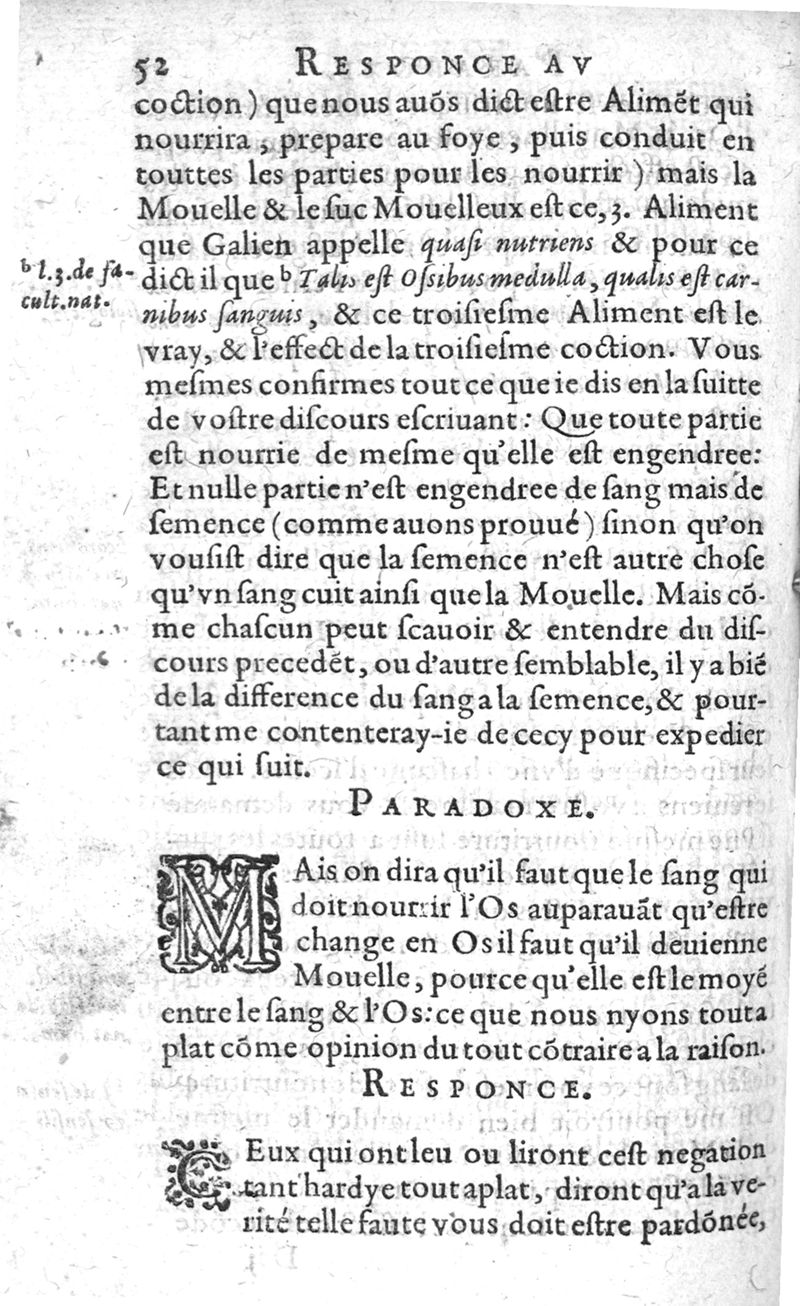 52 RESPONCE AV
coction) que nous auõs dict estre Alimẽt qui
nourrira, prepare au foye, puis conduit en
touttes les parties pour les nourrir) mais la
Mouelle & le suc Mouelleux est ce, 3. Aliment
que Galien appelle quasi nutriens & pour ce
b l.3.de fa-
cult.nat.
dict il que b Talis est Ossibus medulla, qualis est car-
nibus sanguis, & ce troisiesme Aliment est le
vray, & l'effect de la troisiesme coction. Vous
mesmes confirmes tout ce que ie dis en la suitte
de vostre discours escriuant: Que toute partie
est nourrie de mesme qu'elle est engendree:
Et nulle partie n'est engendree de sang mais de
semence (comme auons prouué) sinon qu'on
vousist dire que la semence n'est autre chose
qu'vn sang cuit ainsi que la Mouelle. Mais cõ-
me chascun peut scauoir & entendre du dis-
cours precedẽt, ou d'autre semblable, il y a biẽ
de la difference du sang a la semence, & pour-
tant me contenteray-ie de cecy pour expedier
ce qui suit.
PARADOXE.
MAis on dira qu'il faut que le sang qui
doit nourrir l'Os auparauãt qu'estre
change en Os il faut qu'il deuienne
Mouelle, pource qu'elle est le moyẽ
entre le sang & l'Os: ce que nous nyons tout a
plat cõme opinion du tout cõtraire a la raison.
RESPONCE.
CEux qui ont leu ou liront cest negation
tant hardye tout aplat, diront qu'a la ve-
rité telle faute vous doit estre pardõnée,